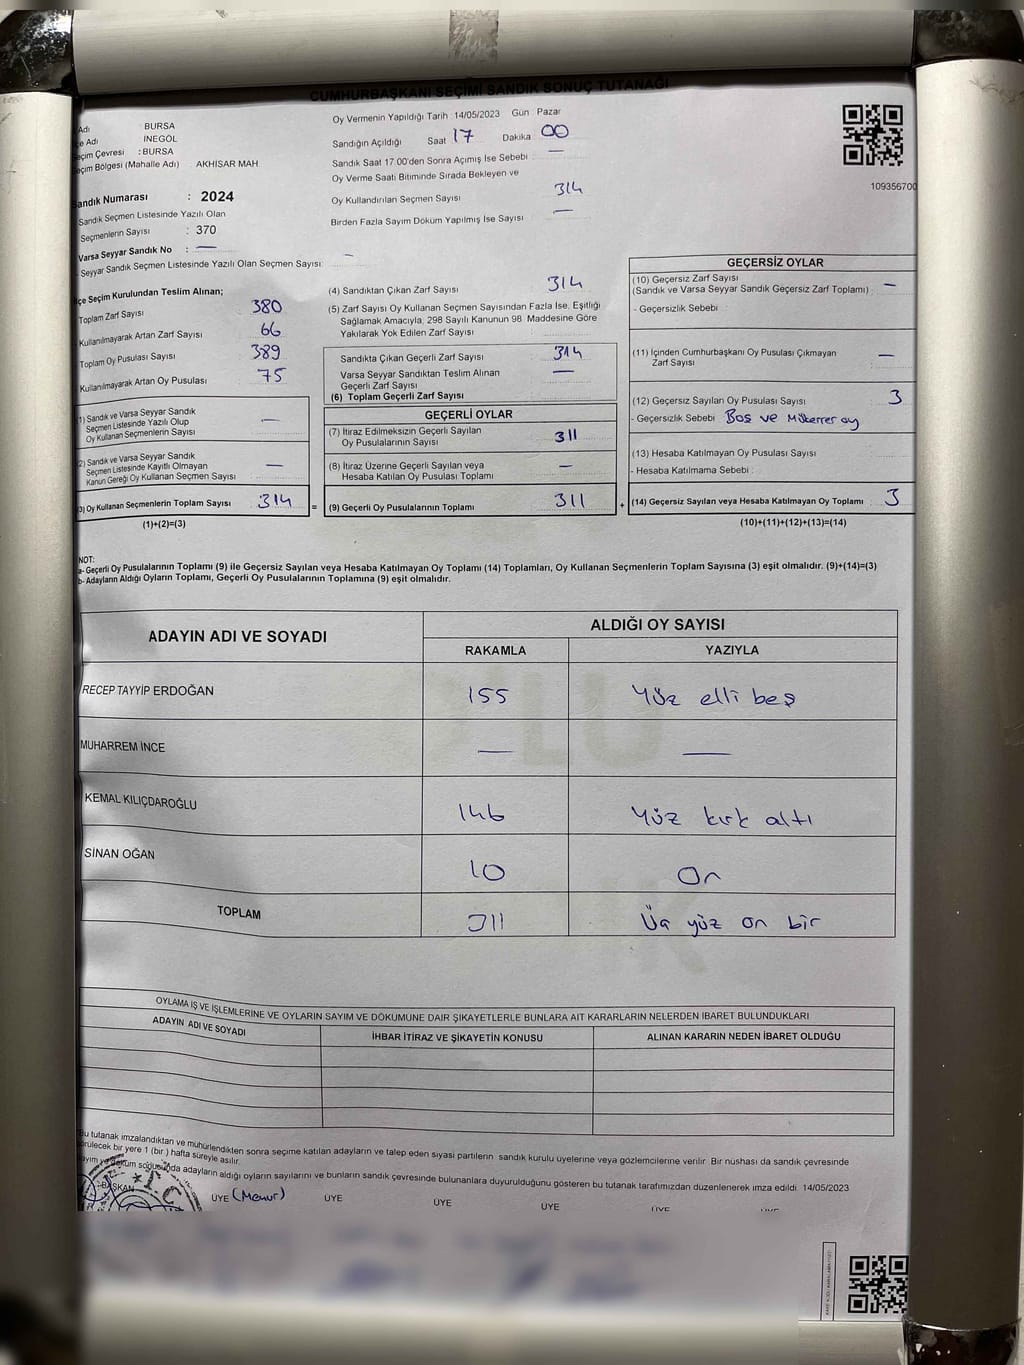 CUMHURBAŞKANI SEÇİMİ SANDIK SONUÇ TUTANAĞI
Adı BURSA
çe Adı İNEGÖL
eçim Çevresi : BURSA
eçim Bölgesi (Mahalle Adı) AKHİSAR MAH.
Sandık Numarası : 2024
Sandık Seçmen Listesinde Yazılı Olan
Seçmenlerin Sayısı : 370
Varsa Seyyar Sandık No : —
Seyyar Sandık Seçmen Listesinde Yazılı Olan Seçmen Sayısı: —
Oy Vermenin Yapıldığı Tarih : 14/05/2023 Gün : Pazar
Sandığın Açıldığı Saat 17 Dakika 00
Sandık Saat 17.00'den Sonra Açımış İse Sebebi —
Oy Verme Saati Bitiminde Sırada Bekleyen ve
Oy Kullandırılan Seçmen Sayısı 314
Birden Fazla Sayım Döküm Yapılmış İse Sayısı —
109356700
çe Seçim Kurulundan Teslim Alınan;
Toplam Zarf Sayısı 380
Kullanılmayarak Artan Zarf Sayısı 66
Toplam Oy Pusulası Sayısı 389
Kullanılmayarak Artan Oy Pusulası 75
(1) Sandık ve Varsa Seyyar Sandık
Seçmen Listesinde Yazılı Olup
Oy Kullanan Seçmenlerin Sayısı —
(2) Sandık ve Varsa Seyyar Sandık
Seçmen Listesinde Kayıtlı Olmayan
Kanun Gereği Oy Kullanan Seçmen Sayısı —
(3) Oy Kullanan Seçmenlerin Toplam Sayısı 314 =
(1)+(2)=(3)
(4) Sandıktan Çıkan Zarf Sayısı 314
(5) Zarf Sayısı Oy Kullanan Seçmen Sayısından Fazla İse, Eşitliği
Sağlamak Amacıyla, 298 Sayılı Kanunun 98. Maddesine Göre
Yakılarak Yok Edilen Zarf Sayısı
Sandıkta Çıkan Geçerli Zarf Sayısı 314
Varsa Seyyar Sandıktan Teslim Alınan
Geçerli Zarf Sayısı —
(6) Toplam Geçerli Zarf Sayısı
GEÇERLİ OYLAR
(7) İtiraz Edilmeksizin Geçerli Sayılan
Oy Pusulalarının Sayısı 311
(8) İtiraz Üzerine Geçerli Sayılan veya
Hesaba Katılan Oy Pusulası Toplamı —
(9) Geçerli Oy Pusulalarının Toplamı 311 +
GEÇERSİZ OYLAR
(10) Geçersiz Zarf Sayısı
(Sandık ve Varsa Seyyar Sandık Geçersiz Zarf Toplamı) —
- Geçersizlik Sebebi :
(11) İçinden Cumhurbaşkanı Oy Pusulası Çıkmayan
Zarf Sayısı —
(12) Geçersiz Sayılan Oy Pusulası Sayısı 3
- Geçersizlik Sebebi : Boş ve Mükerrer oy
(13) Hesaba Katılmayan Oy Pusulası Sayısı
- Hesaba Katılmama Sebebi :
(14) Geçersiz Sayılan veya Hesaba Katılmayan Oy Toplamı 3
(10)+(11)+(12)+(13)=(14)
NOT:
a- Geçerli Oy Pusulalarının Toplamı (9) ile Geçersiz Sayılan veya Hesaba Katılmayan Oy Toplamı (14) Toplamları, Oy Kullanan Seçmenlerin Toplam Sayısına (3) eşit olmalıdır. (9)+(14)=(3)
b- Adayların Aldığı Oyların Toplamı, Geçerli Oy Pusulalarının Toplamına (9) eşit olmalıdır.
ADAYIN ADI VE SOYADI ALDIĞI OY SAYISI
RAKAMLA YAZIYLA
RECEP TAYYİP ERDOĞAN 155 Yüz elli beş
MUHARREM İNCE — —
KEMAL KILIÇDAROĞLU 146 Yüz kırk altı
SİNAN OĞAN 10 On
TOPLAM 311 Üç yüz on bir
OYLAMA İŞ VE İŞLEMLERİNE VE OYLARIN SAYIM VE DÖKÜMÜNE DAİR ŞİKAYETLERLE BUNLARA AİT KARARLARIN NELERDEN İBARET BULUNDUKLARI
ADAYIN ADI VE SOYADI İHBAR İTİRAZ VE ŞİKAYETİN KONUSU ALINAN KARARIN NEDEN İBARET OLDUĞU
Bu tutanak imzalandıktan ve mühürlendikten sonra seçime katılan adayların ve talep eden siyasi partilerin sandık kurulu üyelerine veya gözlemcilerine verilir. Bir nüshası da sandık çevresinde
görülecek bir yere 1 (bir) hafta süreyle asılır.
ayım döküm sonucunda adayların aldığı oyların sayılarını ve bunların sandık çevresinde bulunanlara duyurulduğunu gösteren bu tutanak tarafımızdan düzenlenerek imza edildi. 14/05/2023
BAŞKAN ÜYE (Memur) ÜYE ÜYE ÜYE ÜYE ÜYE
T.C.